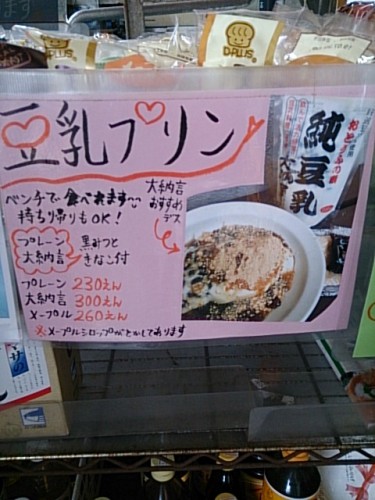 D-PLUS
豆乳プリン
ベンチで食べれます
持ち帰りもOK!
大納言
おすすめ
デス
プレーン
大納言
黒みつと
きなこ付
プレーン 230えん
大納言 300えん
メープル 260えん
※メープルシロップがとかしてあります
純豆乳